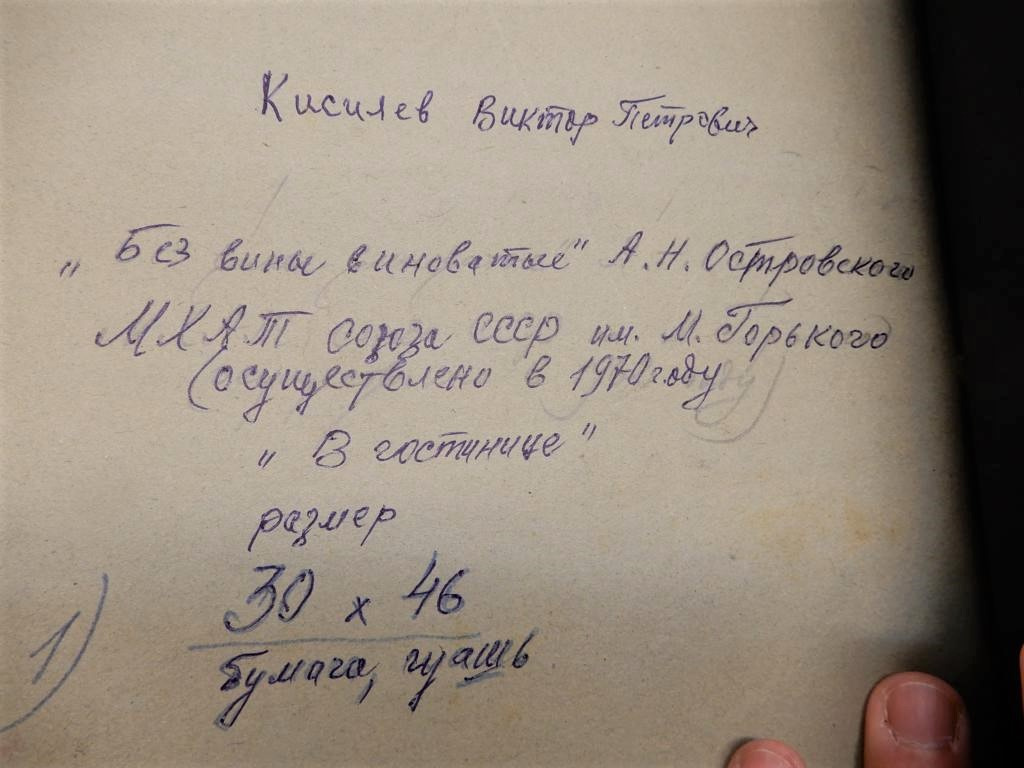 Кисилев Виктор Петрович
„Без вины виноватые" А.Н. Островского
МХАТ Союза СССР им. М. Горького
(осуществлено в 1970 году)
„В гостинице"
размер
30 х 46
1)
бумага, гуашь